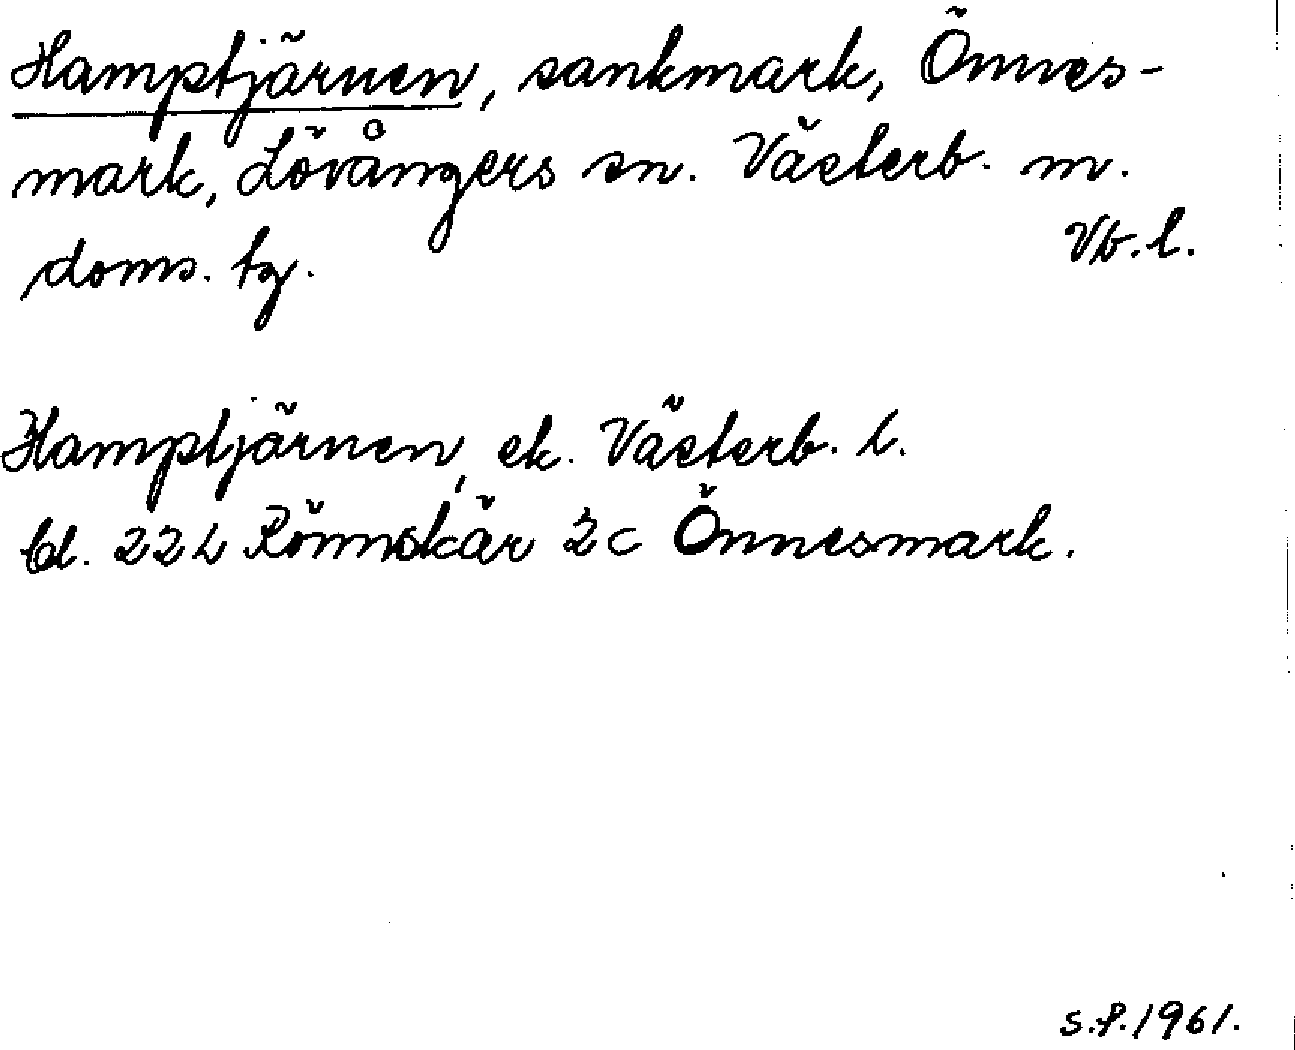 Hamptjärnen, sankmark, Önnes-
mark, Lövångers sn. Västerb. m.
doms. tg. Vb. l.
Hamptjärnen, ek. Västerb. l.
bl. 22L Rönnskär 2c Önnesmark.
S.P. 1961.